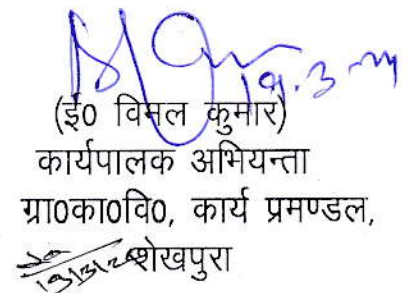 19.3.24
(ई0 विमल कुमार)
कार्यपालक अभियन्ता
ग्रा0का0वि0, कार्य प्रमण्डल,
शेखपुरा